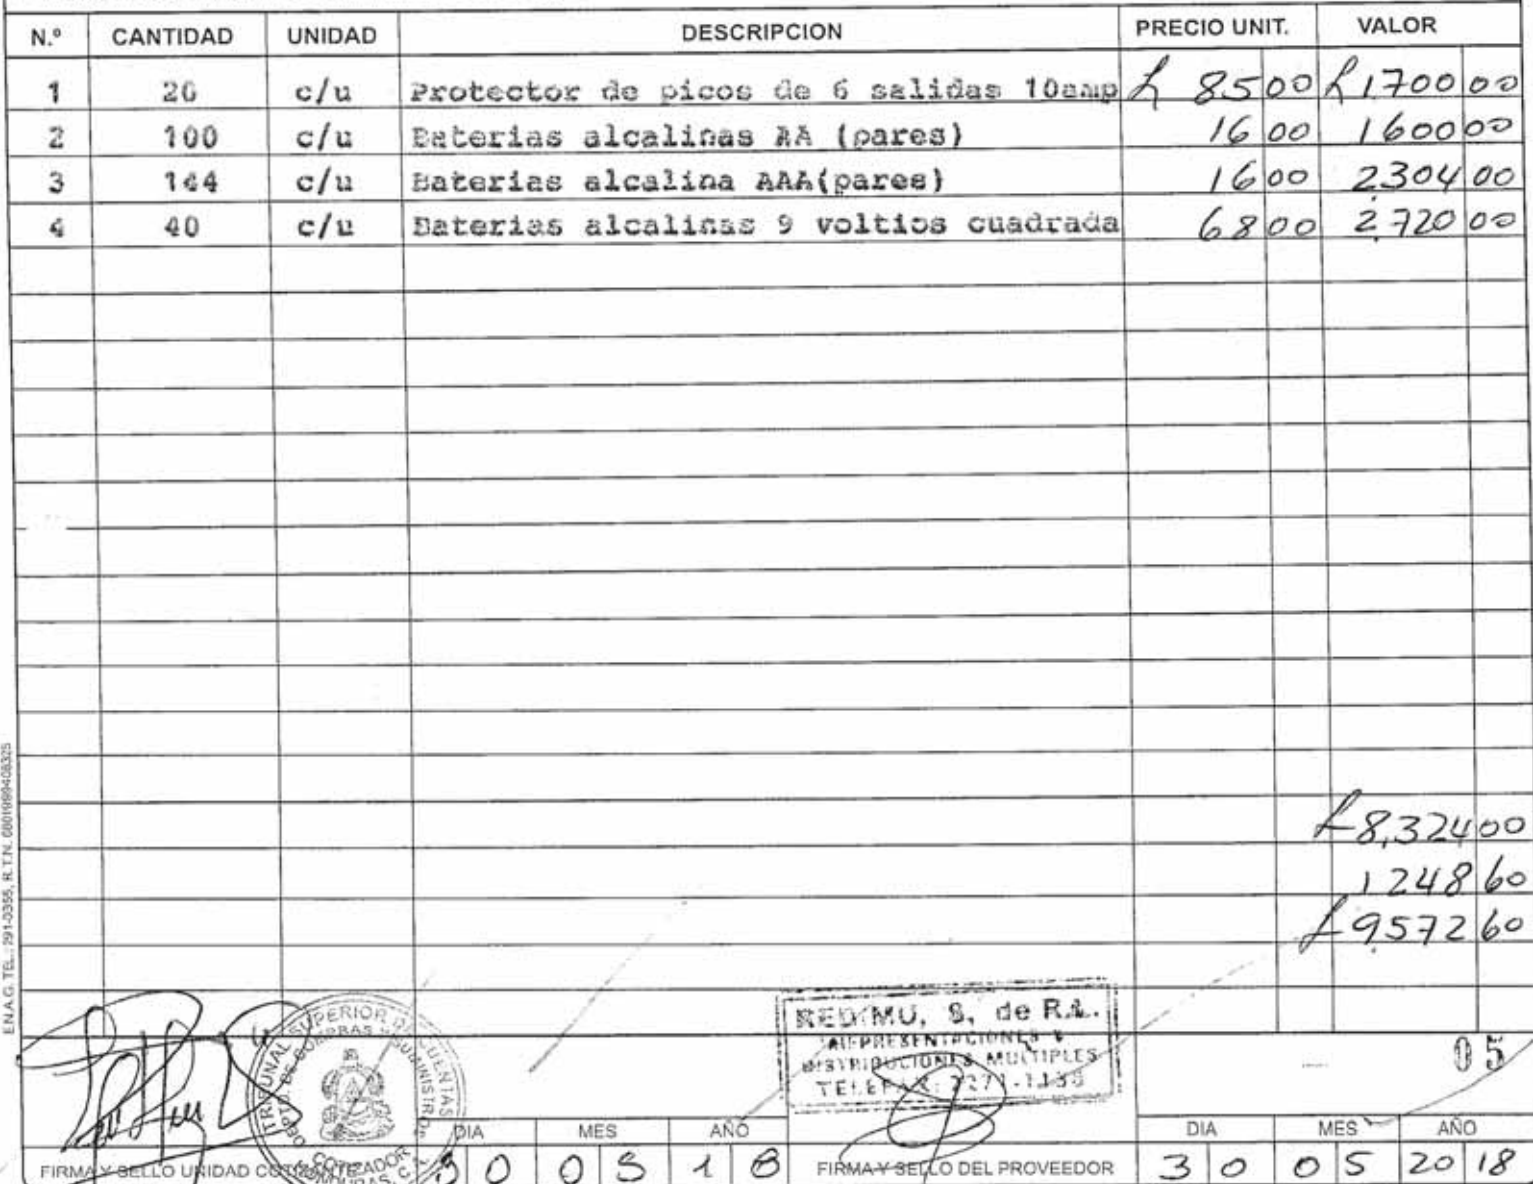 N.º CANTIDAD UNIDAD DESCRIPCION PRECIO UNIT. VALOR
1 20 c/u Protector de picos de 6 salidas 10amp L 85 00 L 1700 00
2 100 c/u Baterias alcalinas AA (pares) 16 00 1600 00
3 144 c/u Baterias alcalina AAA(pares) 16 00 2304 00
4 40 c/u Baterias alcalinas 9 voltios cuadrada 68 00 2720 00
L 8,324 00
1248 60
L 9572 60
E.N.A.G. TEL.: 291-0355, R.T.N.
TRIBUNAL SUPERIOR DE CUENTAS
DEPTO. DE COMPRAS Y SUMINISTROS
COTIZADOR
HONDURAS, C.
REDIMU, S. de R.L.
REPRESENTACIONES Y
DISTRIBUCIONES MULTIPLES
TELEFAX: 2271-1138
05
DIA MES AÑO DIA MES AÑO
FIRMA Y SELLO UNIDAD COTIZANTE 30 05 18 FIRMA Y SELLO DEL PROVEEDOR 30 05 2018